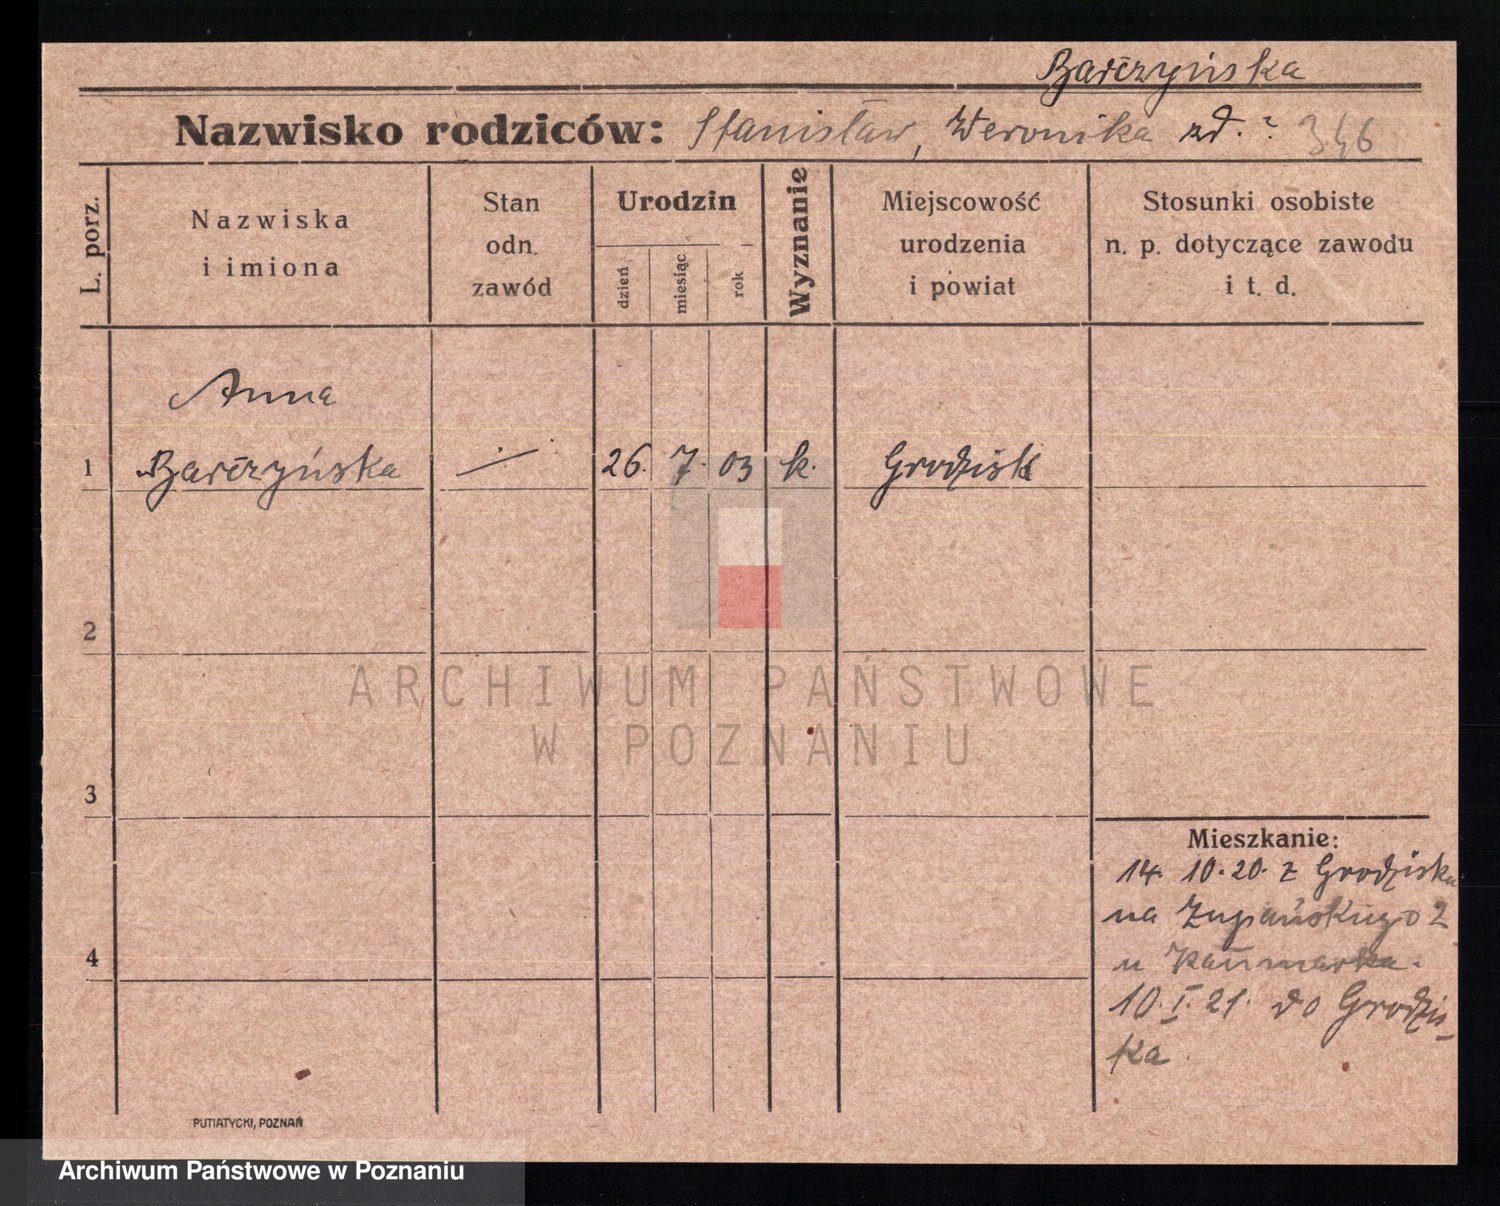 Barczyńska
Nazwisko rodziców: Stanisław, Weronika zd. ? 346
L. porz.
Nazwiska
i imiona
Stan
odn.
zawód
Urodzin
dzień
miesiąc
rok
Wyznanie
Miejscowość
urodzenia
i powiat
Stosunki osobiste
n. p. dotyczące zawodu
i t. d.
Anna
1 Barczyńska 26. 7. 03 k. Grodzisk
2
ARCHIWUM PAŃSTWOWE
W POZNANIU
3
4
Mieszkanie:
14. 10. 20. z Grodziska
na Żupańskiego 2
u Kaumarka.
10. I. 21. do Grodzis-
ka.
PUTIATYCKI, POZNAŃ
Archiwum Państwowe w Poznaniu